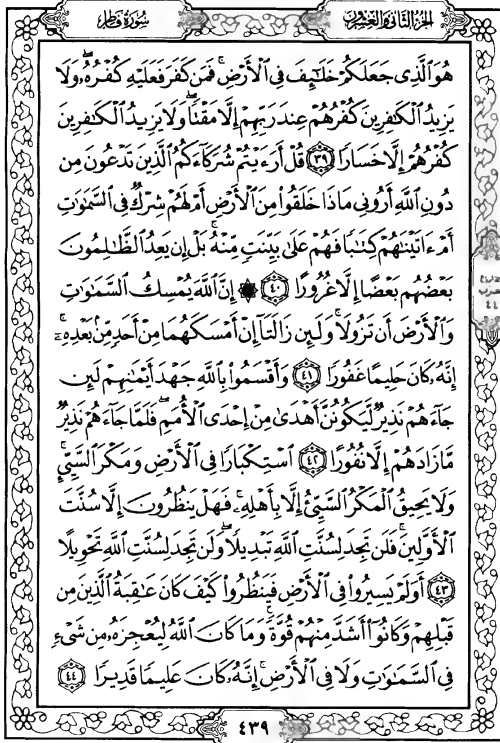 الجزء الثاني والعشرون
سورة فاطر
هُوَ ٱلَّذِى جَعَلَكُمْ خَلَٰٓئِفَ فِى ٱلْأَرْضِ ۚ فَمَن كَفَرَ فَعَلَيْهِ كُفْرُهُۥ ۖ وَلَا
يَزِيدُ ٱلْكَٰفِرِينَ كُفْرُهُمْ عِندَ رَبِّهِمْ إِلَّا مَقْتًا ۖ وَلَا يَزِيدُ ٱلْكَٰفِرِينَ
كُفْرُهُمْ إِلَّا خَسَارًا ٣٩ قُلْ أَرَءَيْتُمْ شُرَكَآءَكُمُ ٱلَّذِينَ تَدْعُونَ مِن
دُونِ ٱللَّهِ أَرُونِى مَاذَا خَلَقُوا۟ مِنَ ٱلْأَرْضِ أَمْ لَهُمْ شِرْكٌ فِى ٱلسَّمَٰوَٰتِ
أَمْ ءَاتَيْنَٰهُمْ كِتَٰبًا فَهُمْ عَلَىٰ بَيِّنَتٍ مِّنْهُ ۚ بَلْ إِن يَعِدُ ٱلظَّٰلِمُونَ
بَعْضُهُم بَعْضًا إِلَّا غُرُورًا ٤٠ ۞ إِنَّ ٱللَّهَ يُمْسِكُ ٱلسَّمَٰوَٰتِ
وَٱلْأَرْضَ أَن تَزُولَا ۚ وَلَئِن زَالَتَآ إِنْ أَمْسَكَهُمَا مِنْ أَحَدٍ مِّنۢ بَعْدِهِۦٓ ۚ
إِنَّهُۥ كَانَ حَلِيمًا غَفُورًا ٤١ وَأَقْسَمُوا۟ بِٱللَّهِ جَهْدَ أَيْمَٰنِهِمْ لَئِن
جَآءَهُمْ نَذِيرٌ لَّيَكُونُنَّ أَهْدَىٰ مِنْ إِحْدَى ٱلْأُمَمِ ۖ فَلَمَّا جَآءَهُمْ نَذِيرٌ
مَّا زَادَهُمْ إِلَّا نُفُورًا ٤٢ ٱسْتِكْبَارًا فِى ٱلْأَرْضِ وَمَكْرَ ٱلسَّيِّئِ ۚ
وَلَا يَحِيقُ ٱلْمَكْرُ ٱلسَّيِّئُ إِلَّا بِأَهْلِهِۦ ۚ فَهَلْ يَنظُرُونَ إِلَّا سُنَّتَ
ٱلْأَوَّلِينَ ۚ فَلَن تَجِدَ لِسُنَّتِ ٱللَّهِ تَبْدِيلًا ۖ وَلَن تَجِدَ لِسُنَّتِ ٱللَّهِ تَحْوِيلًا
٤٣ أَوَلَمْ يَسِيرُوا۟ فِى ٱلْأَرْضِ فَيَنظُرُوا۟ كَيْفَ كَانَ عَٰقِبَةُ ٱلَّذِينَ مِن
قَبْلِهِمْ وَكَانُوٓا۟ أَشَدَّ مِنْهُمْ قُوَّةً ۚ وَمَا كَانَ ٱللَّهُ لِيُعْجِزَهُۥ مِن شَىْءٍ
فِى ٱلسَّمَٰوَٰتِ وَلَا فِى ٱلْأَرْضِ ۚ إِنَّهُۥ كَانَ عَلِيمًا قَدِيرًا ٤٤
٤٣٩